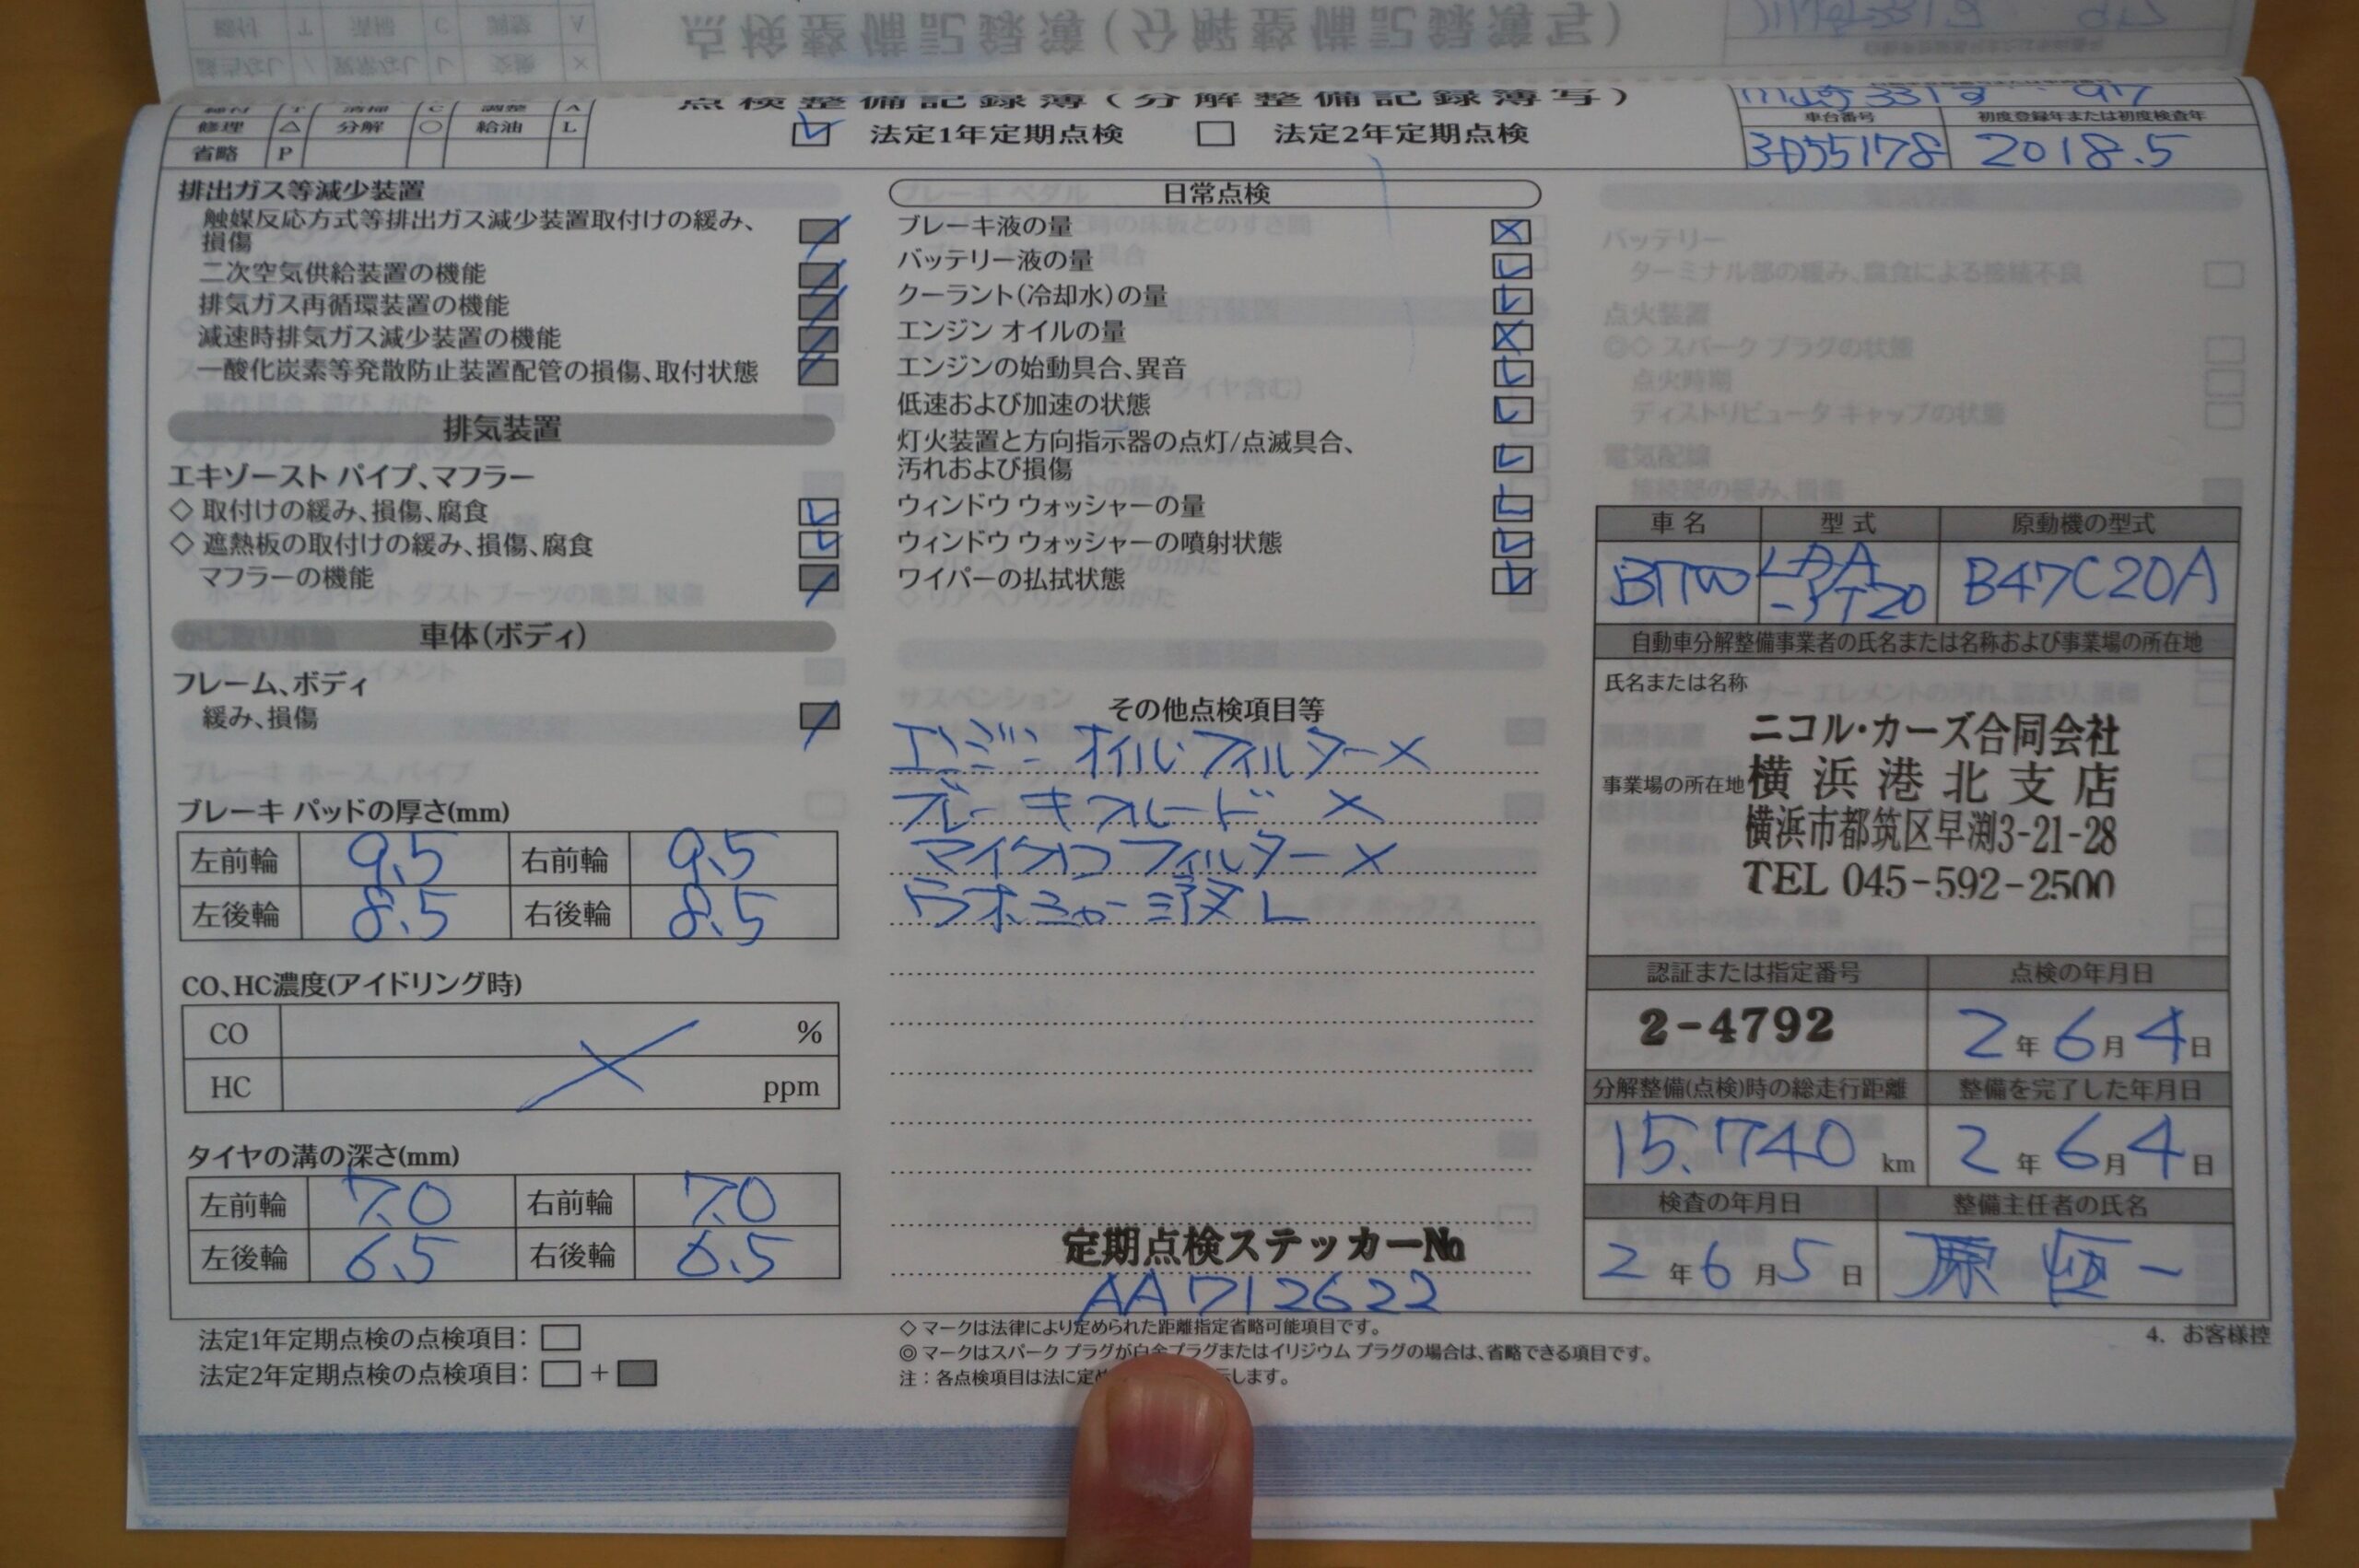 点検整備記録簿(分解整備記録簿写)
締付 T 清掃 C 調整 A
修理 △ 分解 ○ 給油 L
省略 P
法定1年定期点検 法定2年定期点検
川崎331
車台番号 初度登録年または初度検査年
3D55178 2018.5
排出ガス等減少装置
触媒反応方式等排出ガス減少装置取付けの緩み、
損傷
二次空気供給装置の機能
排気ガス再循環装置の機能
減速時排気ガス減少装置の機能
一酸化炭素等発散防止装置配管の損傷、取付状態
排気装置
エキゾースト パイプ、マフラー
◇ 取付けの緩み、損傷、腐食
◇ 遮熱板の取付けの緩み、損傷、腐食
マフラーの機能
車体(ボディ)
フレーム、ボディ
緩み、損傷
ブレーキ パッドの厚さ(mm)
左前輪 9.5 右前輪 9.5
左後輪 8.5 右後輪 8.5
CO、HC濃度(アイドリング時)
CO %
HC ppm
タイヤの溝の深さ(mm)
左前輪 7.0 右前輪 7.0
左後輪 6.5 右後輪 6.5
法定1年定期点検の点検項目:
法定2年定期点検の点検項目: +
日常点検
ブレーキ液の量
バッテリー液の量
クーラント(冷却水)の量
エンジン オイルの量
エンジンの始動具合、異音
低速および加速の状態
灯火装置と方向指示器の点灯/点滅具合、
汚れおよび損傷
ウィンドウ ウォッシャーの量
ウィンドウ ウォッシャーの噴射状態
ワイパーの払拭状態
その他点検項目等
エンジン オイルフィルター ×
ブレーキフルード ×
マイクロフィルター ×
ウォッシャー液 L
定期点検ステッカーNo
AA712622
◇ マークは法律により定められた距離指定省略可能項目です。
◎ マークはスパーク プラグが白金プラグまたはイリジウム プラグの場合は、省略できる項目です。
注:各点検項目は法に定め します。
車名 型式 原動機の型式
BMW LDA B47C20A
-YT20
自動車分解整備事業者の氏名または名称および事業場の所在地
氏名または名称
ニコル・カーズ合同会社
事業場の所在地 横浜港北支店
横浜市都筑区早渕3-21-28
TEL 045-592-2500
認証または指定番号 点検の年月日
2-4792 2年6月4日
分解整備(点検)時の総走行距離 整備を完了した年月日
15.740 km 2年6月4日
検査の年月日 整備主任者の氏名
2年6月5日 原 恒一
4. お客様控